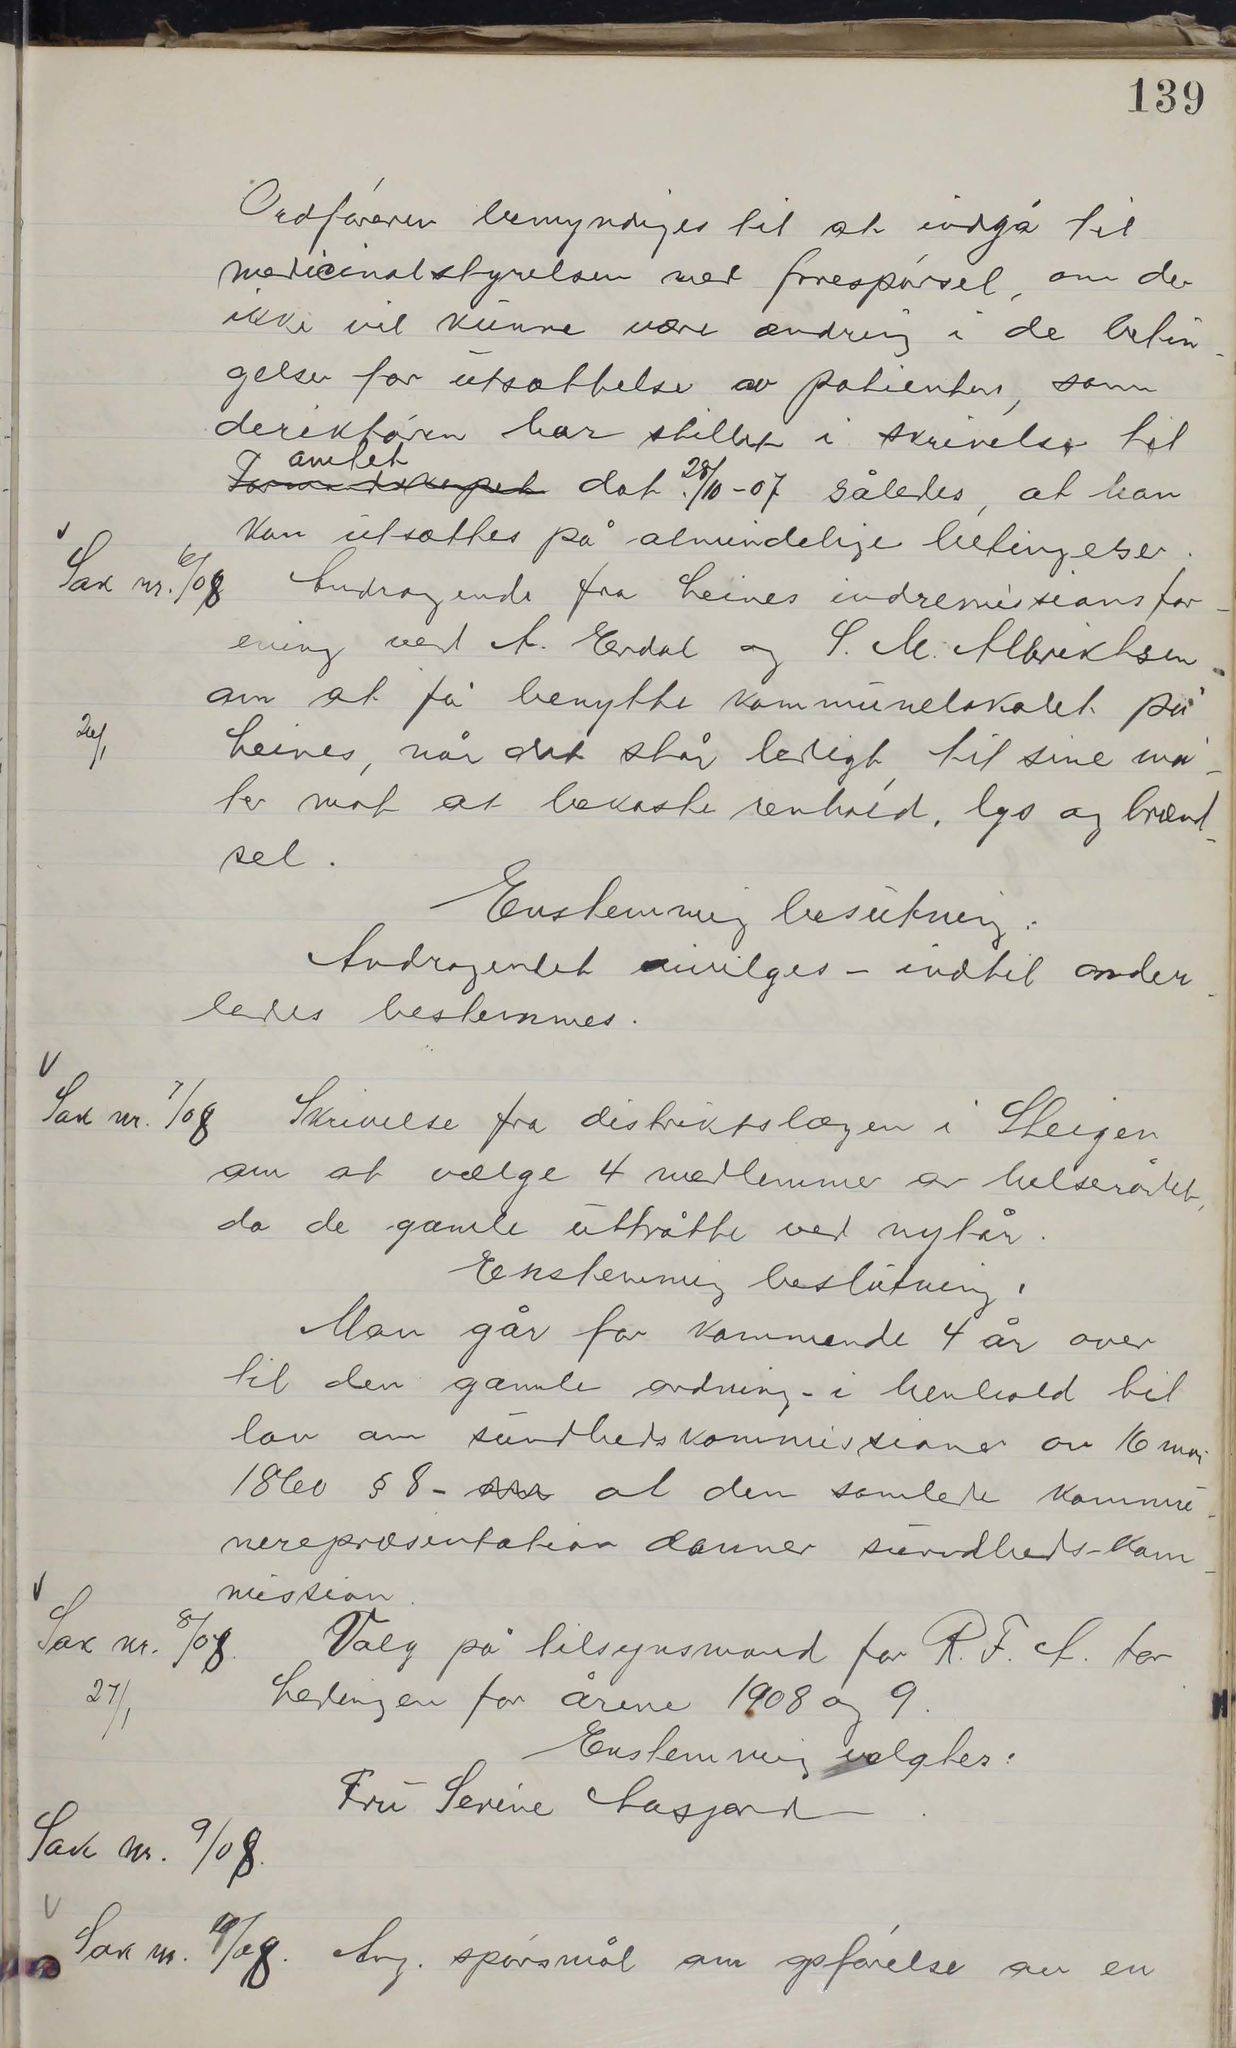 139
Ordføreren bemyndiges til at indgå til
medicinalstyrelsen med forespørsel, om der
ikke vil kunne være ændring i de betin-
gelser for utsættelse av patienten, som
direktøren har stillet i skrivelse til
amtet
Formandskapet dat. 28/10-07 således, at han
kan utsættes på almindelige betingelser.
v
Sak nr. 6/08 Andragende fra Leines indremissionsfor-
ening ved A. Erdal og S. M. Albriktsen
om at få benytte kommunelokalet på
24/1 Leines, når det står ledigt, til sine mø-
ter mot at bekoste renhold, lys og brænd-
sel.
Enstemmig beslutning:
Andragendet innvilges – indtil ander-
ledes bestemmes.
v
Sak nr. 7/08 Skrivelse fra distriktslægen i Steigen
om at vælge 4 medlemmer av helserådet,
da de gamle uttrådte ved nytår.
Enstemmig beslutning:
Man går for kommende 4 år over
til den gamle ordning - i henhold til
lov om sundhedskommissioner av 16 mai
1860 § 8 - at den samlede kommu-
nerepræsentation danner sundheds-kom-
mission.
v
Sak nr. 8/08. Valg på tilsynsmand for R. F. A. for
27/1 Ledingen for årene 1908 og 9.
Enstemmig valgtes:
Fru Serine Aasjord
Sak nr. 9/08.
v
Sak nr. 9/08. Ang. spørsmål om opførelse av en